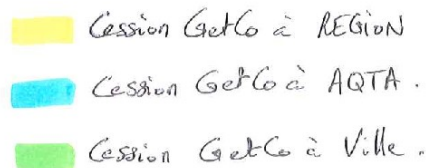 Cession GetCo à REGION
Cession GetCo à AQTA.
Cession GetCo à Ville.